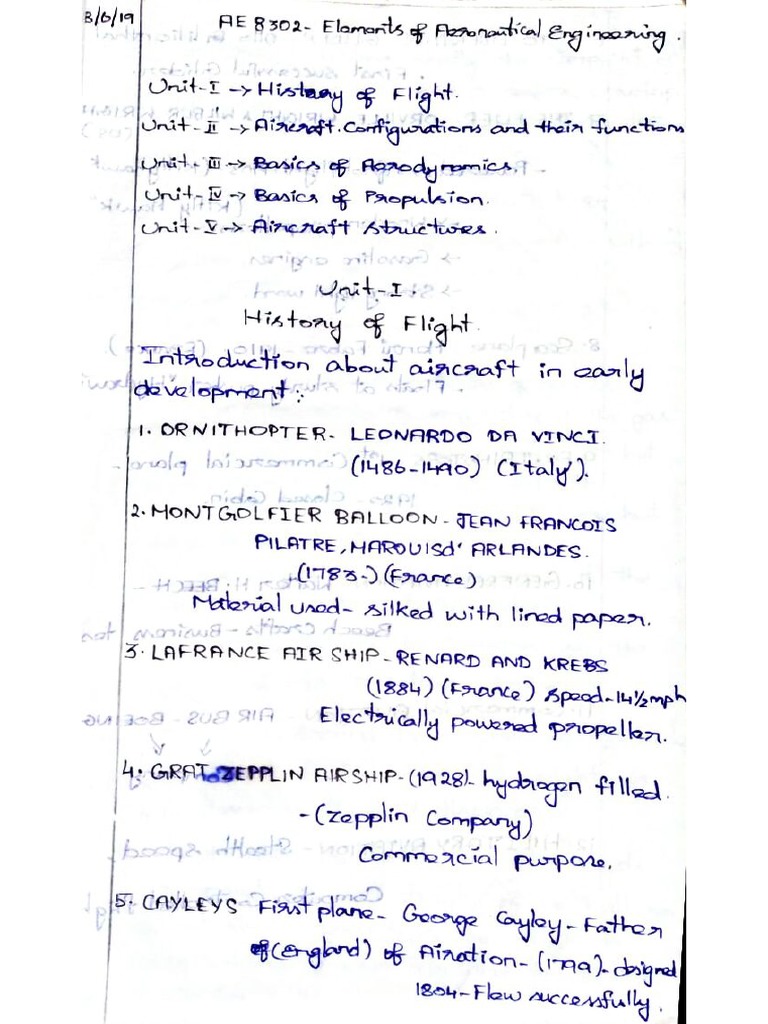 3/6/19
AE 8302- Elements of Aeronautical Engineering.
Unit-I → History of Flight.
Unit-II → Aircraft configurations and their functions
Unit-III → Basics of Aerodynamics.
Unit-IV → Basics of Propulsion.
Unit-V → Aircraft structures.
Unit-I.
History of Flight.
Introduction about aircraft in early
development:-
1. ORNITHOPTER- LEONARDO DA VINCI.
(1486-1490) (Italy).
2. MONTGOLFIER BALLOON- JEAN FRANCOIS
PILATRE, MARQUISd' ARLANDES.
(1783-) (France)
Material used- silked with lined paper.
3. LAFRANCE AIR SHIP- RENARD AND KREBS
(1884) (France) speed-14½mph
Electrically powered propeller.
4. GRAT ZEPPLIN AIRSHIP-(1928)- hydrogen filled.
-(Zepplin Company)
Commercial purpose.
5. CAYLEYS First plane- George Cayley-Father
(England) of Airation-(1799)-designed
1804-Flew successfully.